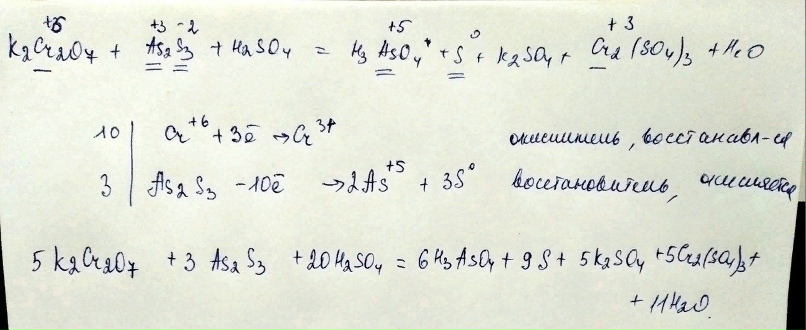 +6 +3 -2 +5 0 +3
K2Cr2O7 + As2S3 + H2SO4 = H3AsO4 + S + K2SO4 + Cr2(SO4)3 + H2O
10 | Cr+6 + 3ē → Cr3+ окислитель, восстанавл-ся
3 | As2S3 - 10ē → 2As+5 + 3S0 восстановитель, окисляется
5 K2Cr2O7 + 3 As2S3 + 20H2SO4 = 6H3AsO4 + 9S + 5K2SO4 + 5Cr2(SO4)3 +
+ 11H2O